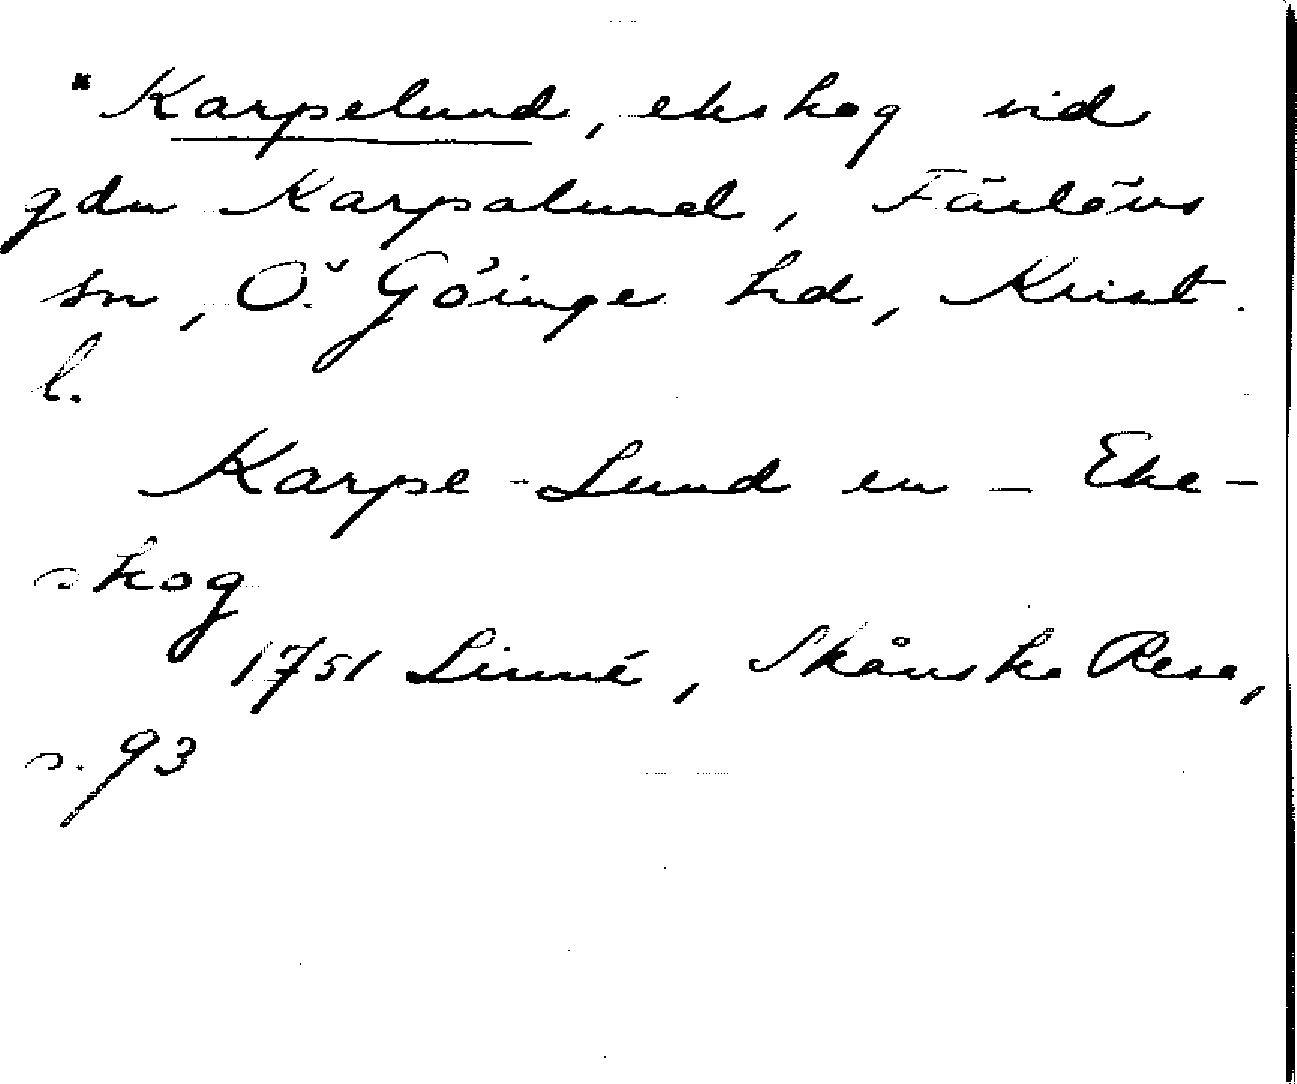 *Karpelund, ekskog vid
gdn Karpalund, Färlövs
sn, Ö. Göinge hd, Krist.
l.
Karpe-Lund en - Eke-
skog
1751 Linné, Skånska Resa,
s. 93